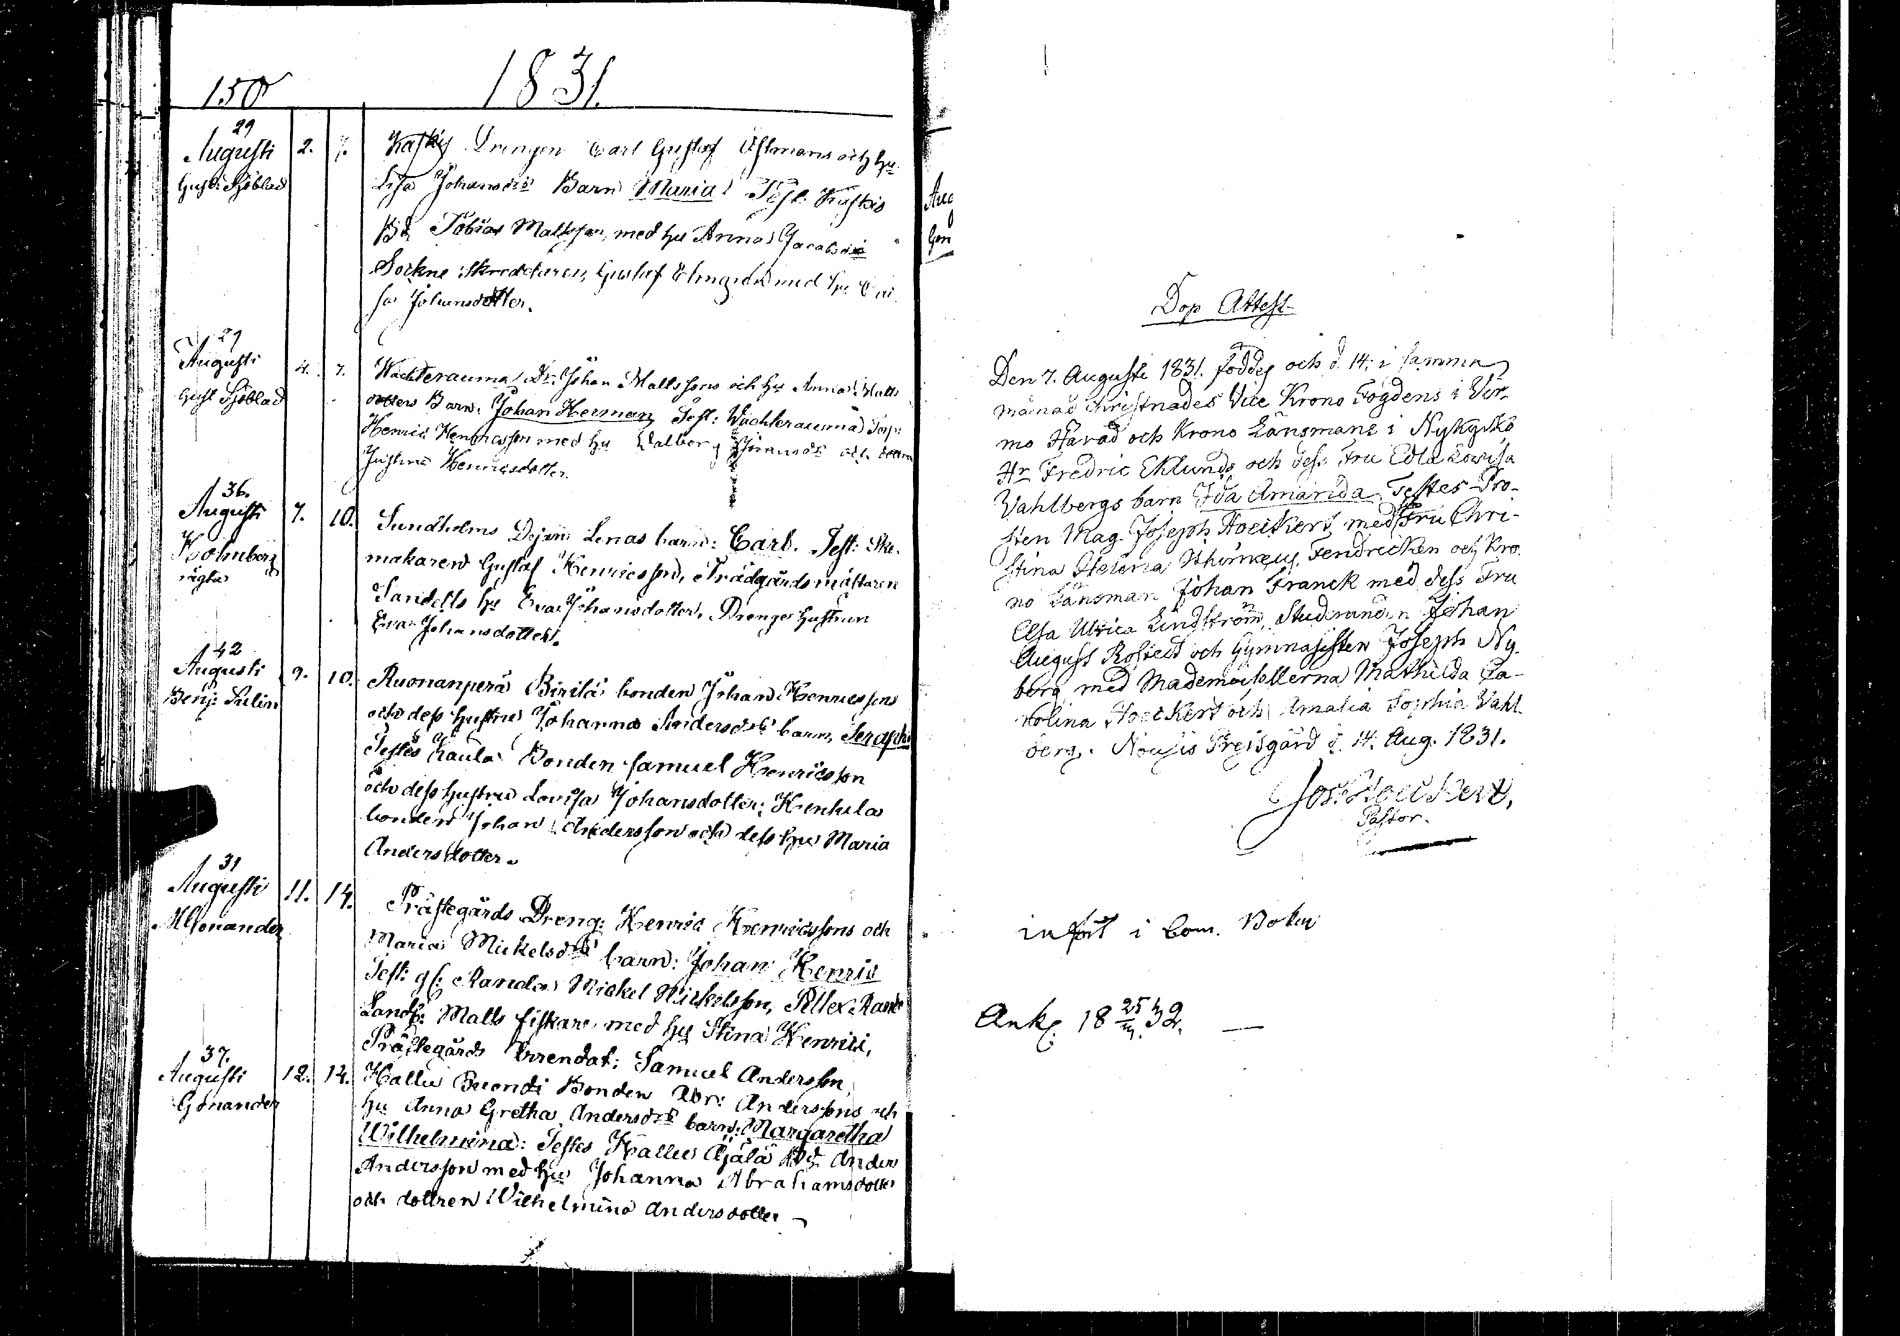 150 1831.
29
Augusti 2. 7. Kaskis Drengen Carl Gustaf Östmans och hu
Gust: Sjöblad Lisa Johansdrs Barn Maria! Test: Kuskis
Bd Tobias Mattsson, med hu Anna Jacobsdr
Sockne Skreddaren, Gustaf Elmgren med hu Cai
sa Johansdotter.
29
Augusti 4. 7. Wachterauma Dr: Johan Mattssons och hu Anna Matts
Gust Sjöblad dotters Barn: Johan Herman Test: Wachterauma Torp:
Henric Henricsson med hu Walborg och dottern
Justina Henricsdotter.
36.
Augusti 7. 10. Sundholms Dejan Lenas barn: Carl. Test: Sko-
Holmberg makaren Gustaf Henricsson, Trädgårdsmästaren
vigde Sandells hu Eva Johansdotter, Drenge hustrun
Eva Johansdotter.
42
Augusti 9. 10. Ruonanperä Birilä bonden Johan Henricssons
Benj: Sulin och dess hustru Johanna Andersdrs barn, Seraphi
Testes Caula Bonden Samuel Henricsson
och dess hustru Lovisa Johansdotter; Kenkula
bonden Johan Andersson och dess hu Maria
Andersdotter.
31
Augusti 11. 14. Prästegårds Dreng: Henric Henricssons och
M Gonander Maria Mickelsdrs barn: Johan Henric
Test: gl: Randa Mickel Mickelsson, Piller Rand
Landb: Matts fiskare med hu Stina Henrici,
Prästegårds Arrendat: Samuel Andersson
37.
Augusti 12. 14. Hallu Buondi Bonden Abr: Anderssons och
Gonander hu Anna Gretha Andersdrs barn: Margaretha
Wilhelmina: Testes Hallu Äjälä Bd Anders
Andersson med hu Johanna Abrahamsdotter
och dottren Wilhelmina Andersdotter
Aug
Gon
Dop Attest
Den 7. Augusti 1831. föddes och d 14: i samma
månad Christnades Vice Krono Fogdens i Vir-
mo Härad och Krono Länsmans i Nykyrko
Hr Fredric Eklunds och dess Fru Edla Lovisa
Vahlbergs barn Ida Amanda. Testes Pro-
sten Mag. Joseph Hoeckert med Fru Chri-
stina Helena Fendricken och Kro
no Länsman Johan Franck med dess Fru
Elsa Ulrica Lindström, Studeranden Johan
August Rostedt och Gymnasisten Joseph Ny-
berg med Mademoisellerna Mathilda Ca-
rolina Hoeckert och Amalia Sophia Vahl
berg. Nousis Prestgård d. 14. Aug. 1831.
Jos: Hoeckert,
Pastor.
infört i Com. Boken
Ank: 18 25/3 32.